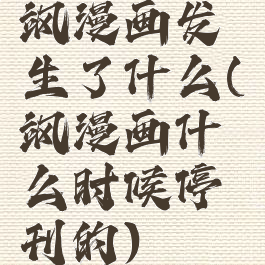 飒漫画发
生了什么(
飒漫画什
么时候停
刊的)